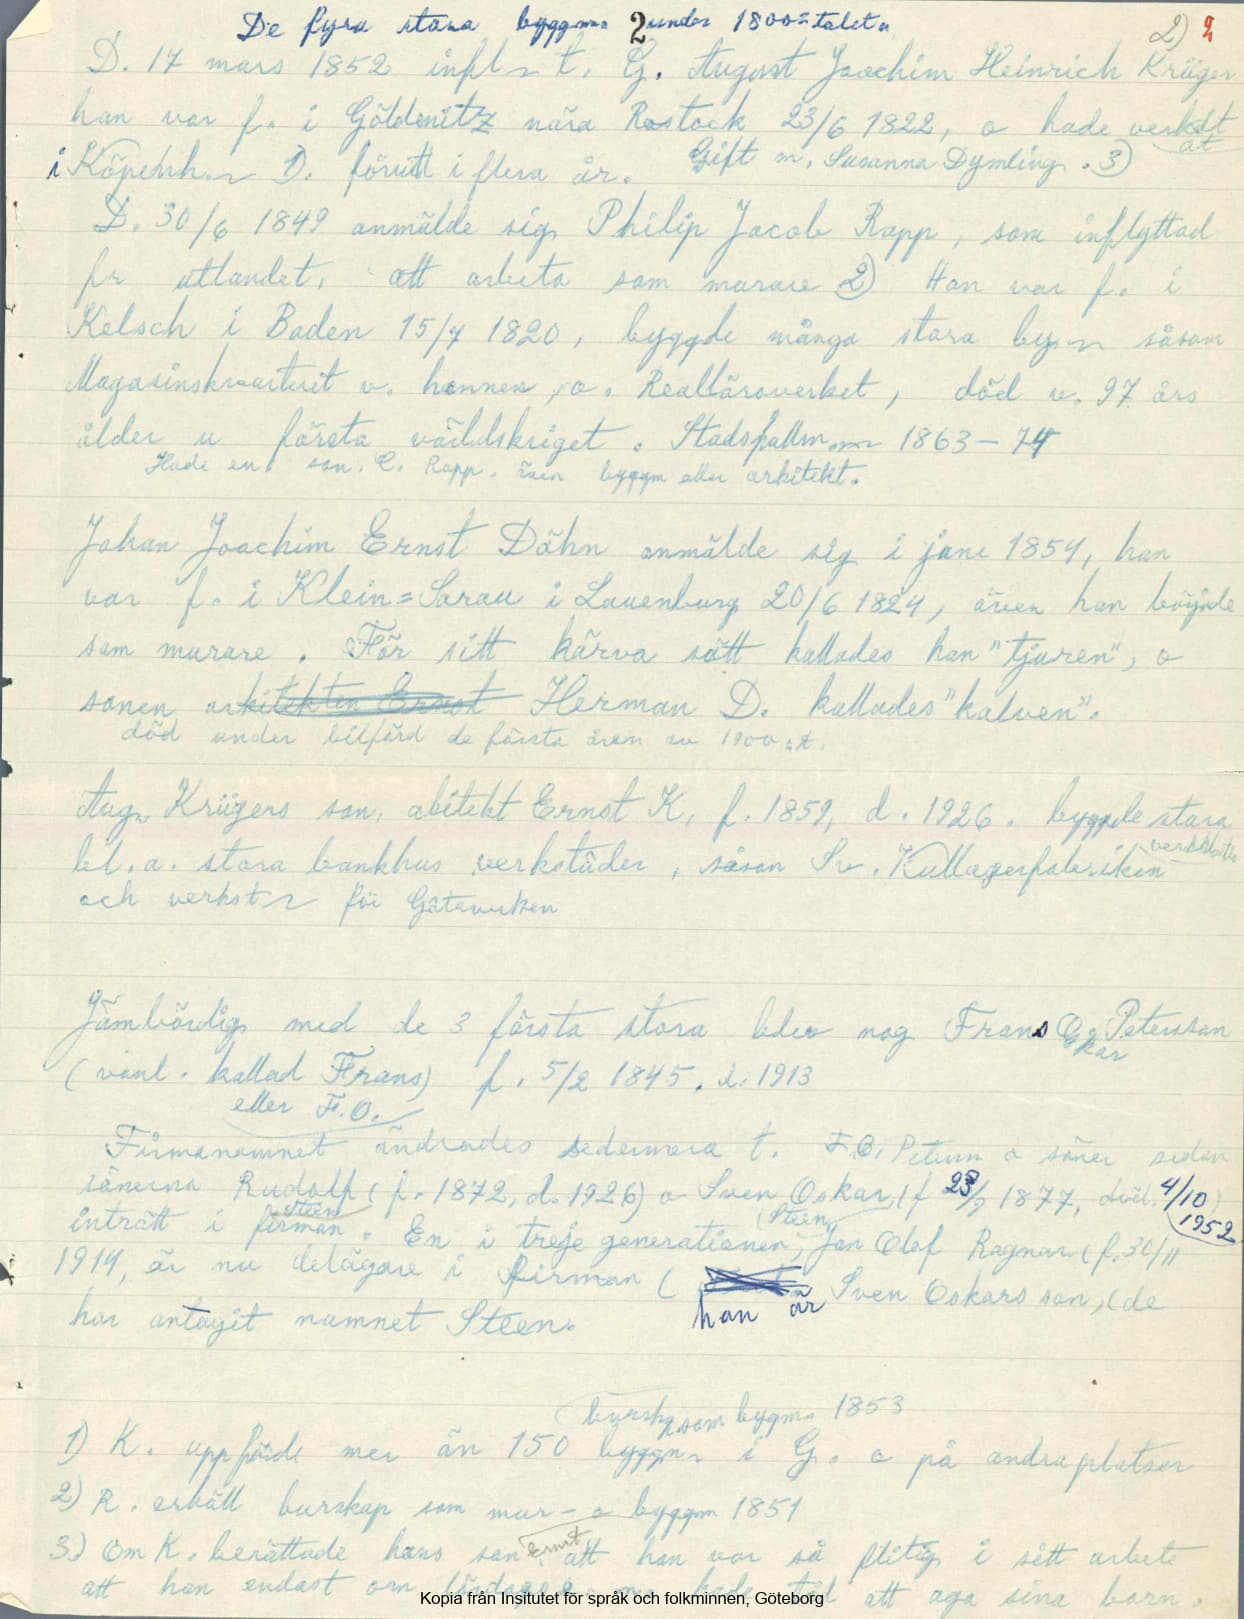 De fyra stora byggm 2 under 1800=talet
2) 2
D. 17 mars 1852 infl t. G. August Joachim Heinrich Krüger
han var f. i Göldenitz nära Rostock 23/6 1822, o hade verkat
at
i Köpenh. 1). förutt i flera år. Gift m. Susanna Dymling. 3)
D. 30/6 1849 anmälde sig Philip Jacob Rapp, som inflyttad
fr utlandet, att arbeta som murare 2) Han var f. i
Kelsch i Baden 15/7 1820, byggde många stora byg såsom
Magasinskvarteret v. hamnen, o. Realläroverket, död v. 97 års
ålder u första världskriget. Stadsfullm 1863-74
Hade en son. C. Rapp. även byggm eller arkitekt.
Johan Joachim Ernst Dähn anmälde sig i juni 1854, han
var f. i Klein=Sarau i Lauenburg 20/6 1824, även han började
som murare. För sitt kärva sätt kallades han "tjuren", o
sonen arkitekten Ernst Herman D. kallades "kalven".
död under bilfärd de första åren av 1900=t.
Aug. Krügers son, akitekt Ernst K, f. 1859, d. 1926. byggde stora
bl.a. stora bankhus verkstäder, såsom Sv. Kullagerfabriken
och verkst för Götaverken
Jämbördig med de 3 första stora blev nog Frans Oskar Petersson
(vanl. kallad Frans) f. 5/2 1845. d. 1913
eller F.O.
Firmanamnet ändrades sedermera t. F.O. Peterson o söner sedan
sönerna Rudolf (f. 1872, d. 1926) o Sven Oskar (f 23/9 1877, död. 4/10
Steen (Steen 1952
inträtt i firman. En i treje generationen, Jan Olof Ragnar (f. 30/11
1914, är nu delägare i firman ( han är Sven Oskars son, (de
har antagit namnet Steen.
bursk som bygm. 1853
1) K. uppförde mer än 150 byggn i G. o på andra platser
2) R. erhöll burskap som mur- o byggm 1851
3.) Om K. berättade hans son Ernst att han var så flitig i sitt arbete
att han endast om hade tid att aga sina barn.
Kopia från Insitutet för språk och folkminnen, Göteborg